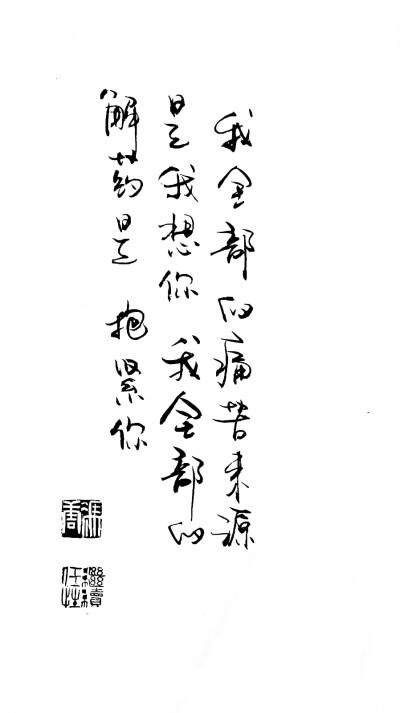 我全部的痛苦来源
是我想你 我全部的
解药是 抱紧你
继续
任性